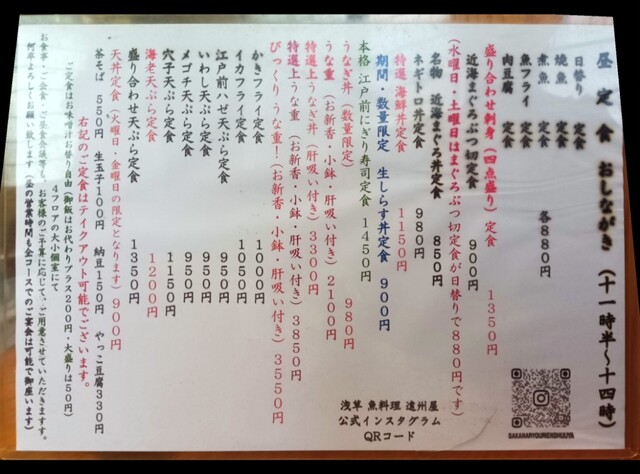 昼定食 おしながき (十一時半～十四時)
日替り 定食
焼魚 定食
煮魚 定食
魚フライ 定食
肉豆腐 定食
各880円
盛り合わせ刺身(四点盛り)定食 1350円
近海まぐろぶつ切定食 900円
(水曜日・土曜日はまぐろぶつ切定食が日替りで880円です)
名物 近海まぐろ丼定食 850円
ネギトロ丼定食 980円
特選 海鮮丼定食 1150円
期間・数量限定 生しらす丼定食 900円
本格 江戸前にぎり寿司定食 1450円
うなぎ丼(数量限定) 980円
うな重(お新香・小鉢・肝吸い付き)2100円
特選上うなぎ丼(肝吸い付き)3300円
特選上うな重(お新香・小鉢・肝吸い付き)3850円
びっくりうな重!(お新香・小鉢・肝吸い付き)3550円
かきフライ定食 1000円
イカフライ定食 1050円
江戸前ハゼ天ぷら定食
いわし天ぷら定食 950円
メゴチ天ぷら定食 950円
穴子天ぷら定食 1150円
海老天ぷら定食 1200円
盛り合わせ天ぷら定食 1350円
天丼定食(火曜日・金曜日の限定となります)900円
茶そば 550円 生玉子100円 納豆150円 やっこ豆腐330円
右記のご定食はテイクアウト可能でございます。
ご定食はお味噌汁お替り自由(御飯はお代わりプラス200円・大盛りは50円)
4フロアの大小個室にて
お食事・ご会食・ご昼食会議等も、お客様のご予算に応じて、ご用意させていただきますす。
何卒よろしくお願い致します(昼の営業時間も全コースでのご宴会は可能で御座います)
SAKANARYOURIENSHUUYA
浅草 魚料理 遠州屋
公式インスタグラム
QRコード